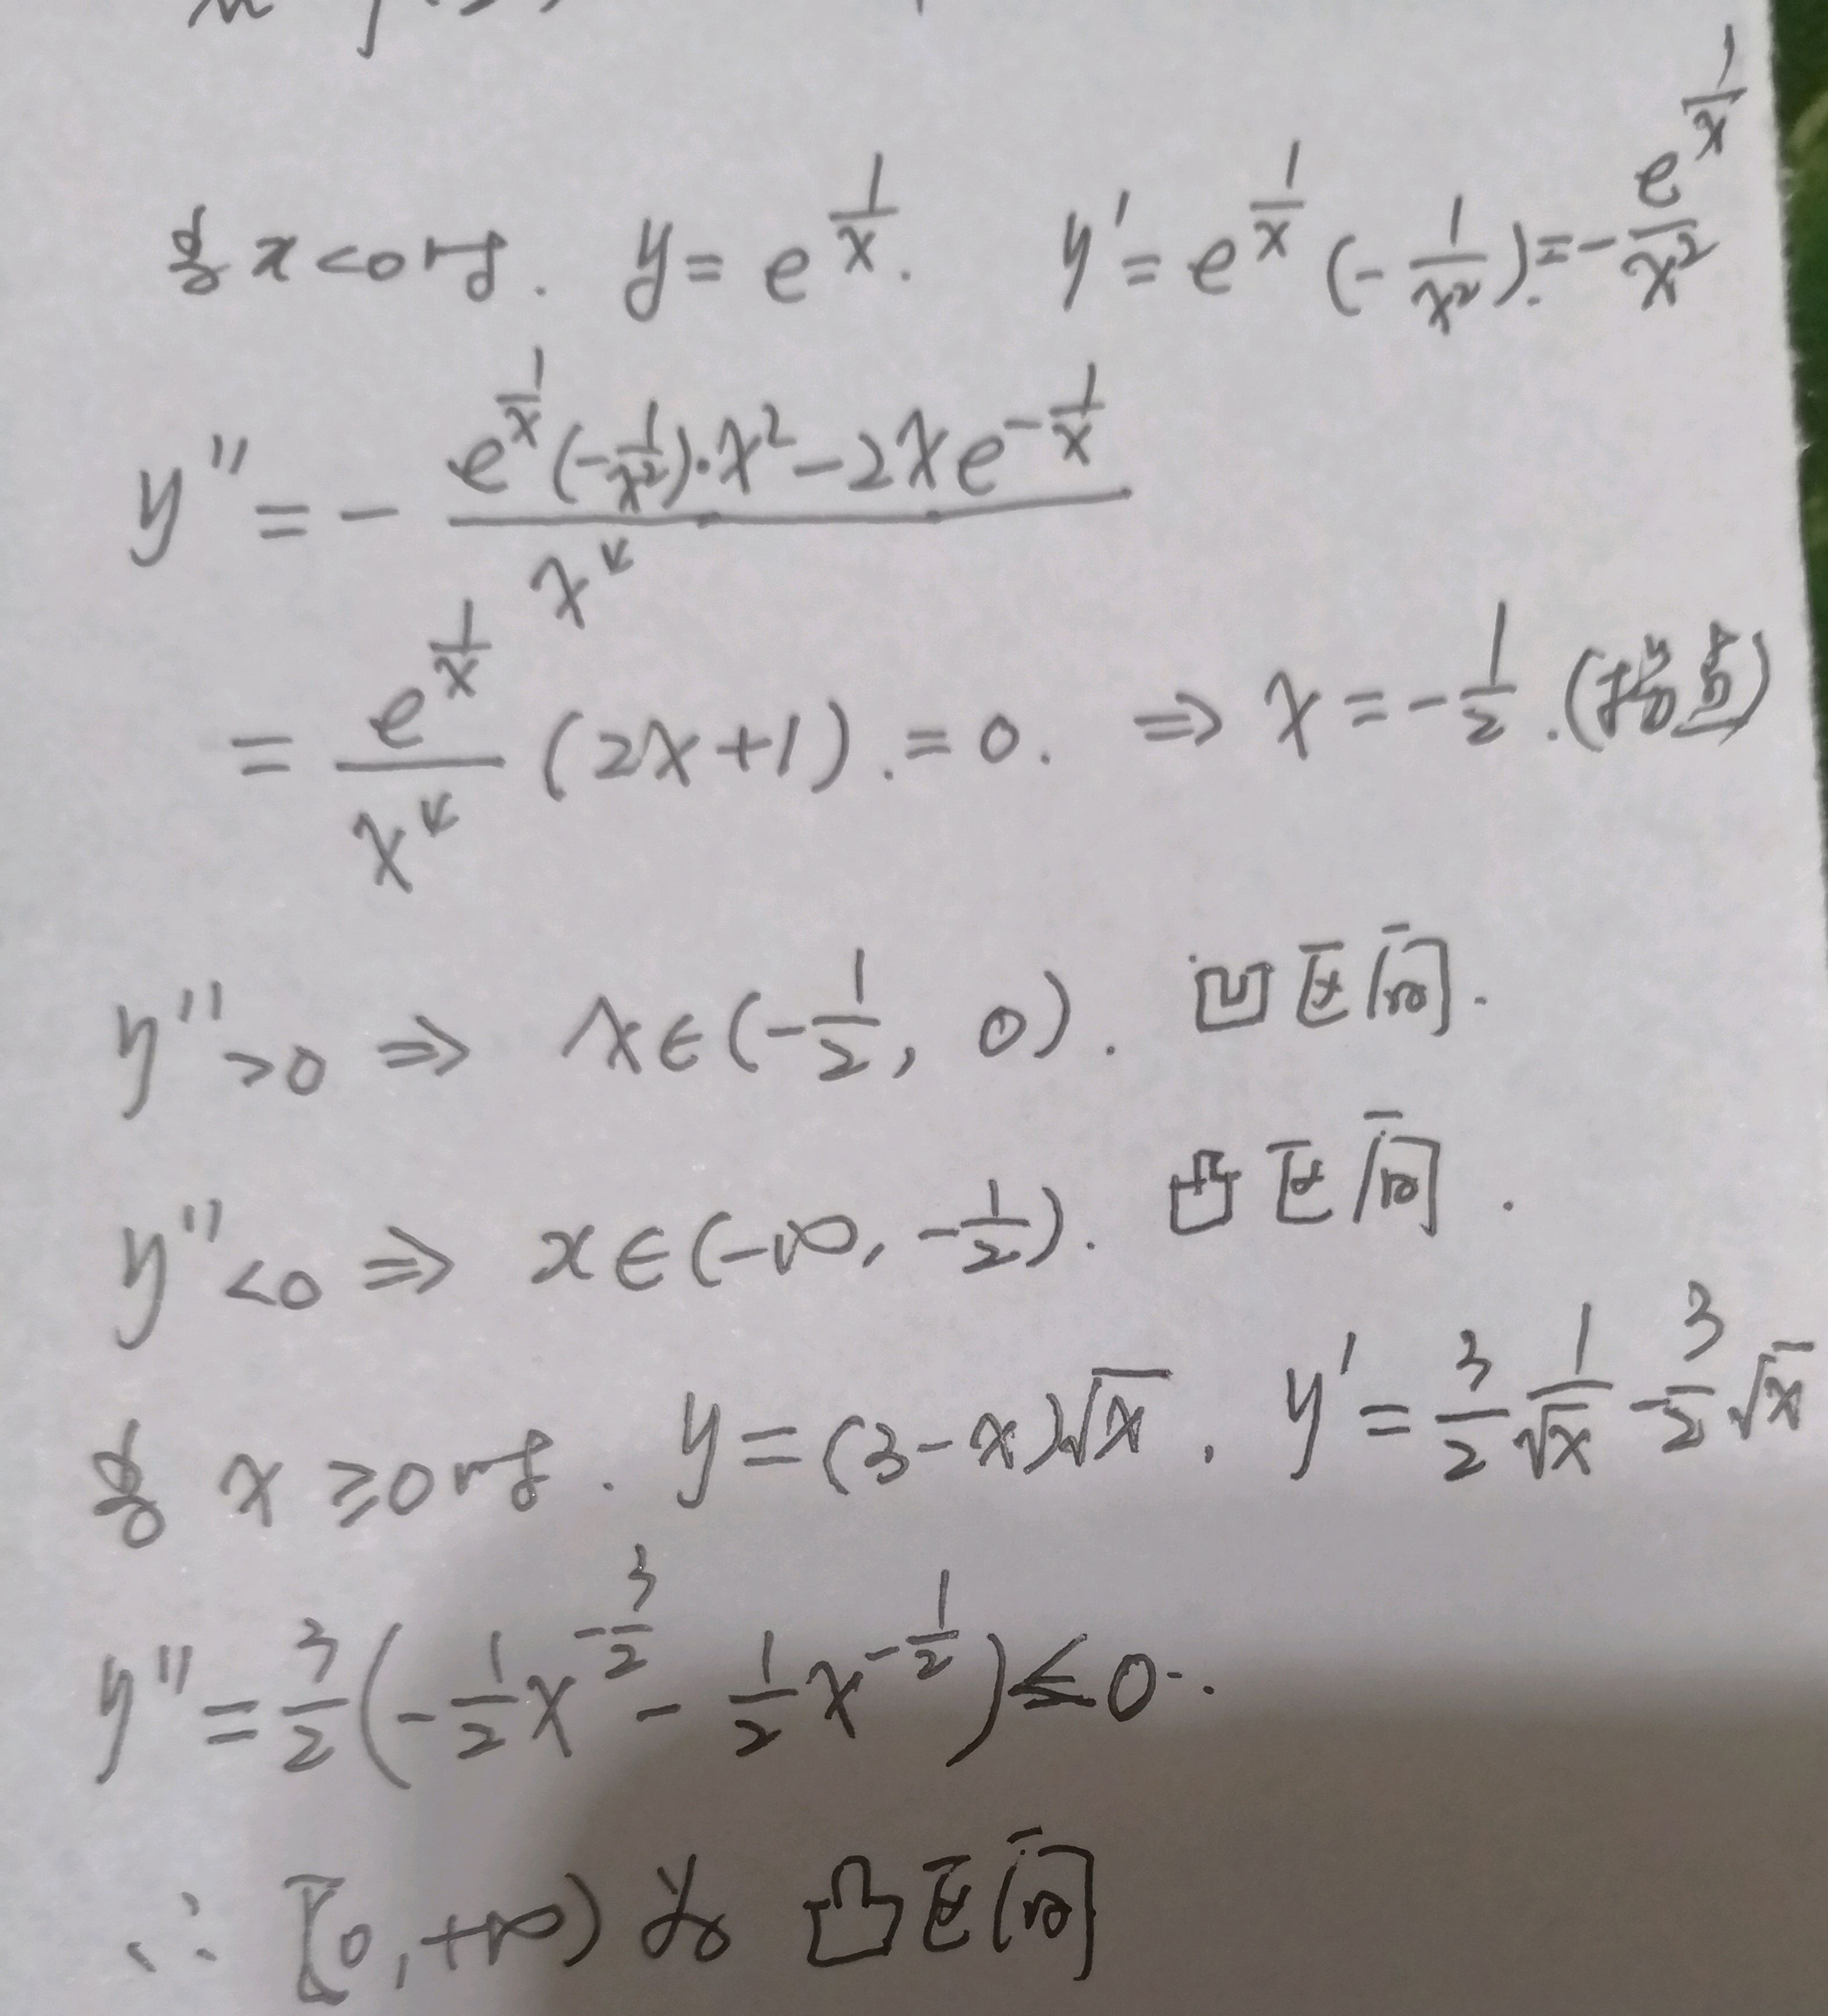 当x<0时. y=e^{\frac{1}{x}}. y'=e^{\frac{1}{x}}(-\frac{1}{x^2}).=-\frac{e^{\frac{1}{x}}}{x^2}
y''=-\frac{e^{\frac{1}{x}}(-\frac{1}{x^2})·x^2-2xe^{-\frac{1}{x}}}{x^4}
=\frac{e^{\frac{1}{x}}}{x^4}(2x+1).=0. ⇒ x=-\frac{1}{2}.(拐点)
y''>0 ⇒ x∈(-\frac{1}{2}, 0). 凹区间.
y''<0 ⇒ x∈(-∞, -\frac{1}{2}). 凸区间.
当x≥0时. y=(3-x)\sqrt{x}. y'=\frac{3}{2}\frac{1}{\sqrt{x}}-\frac{3}{2}\sqrt{x}
y''=\frac{3}{2}(-\frac{1}{2}x^{-\frac{3}{2}}-\frac{1}{2}x^{-\frac{1}{2}})≤0.
∴ [0,+∞)为凸区间